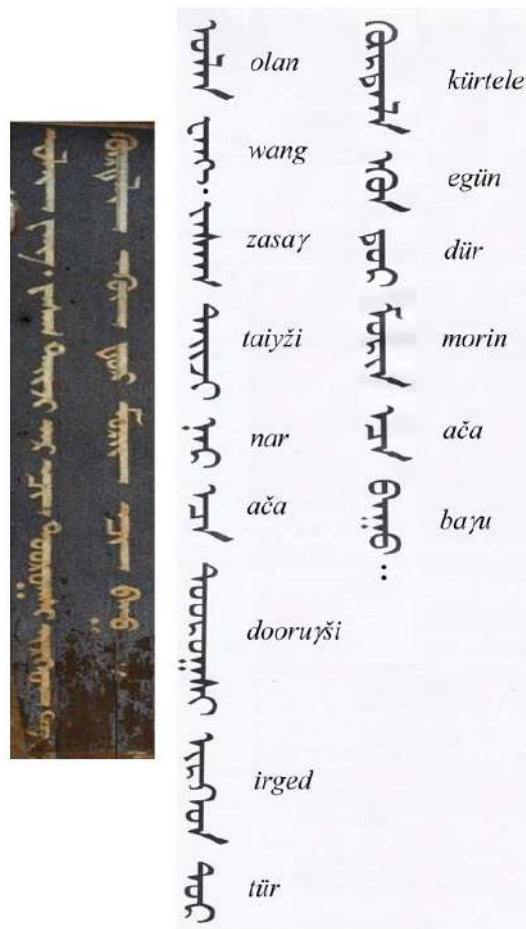 ᠣᠯᠠᠨ olan
ᠸᠠᠩ᠃ wang
ᠵᠠᠰᠠᠭ zasaγ
ᠲᠠᠶᠢᠵᠢ taiyži
ᠨᠠᠷ nar
ᠠᠴᠠ ača
ᠳᠣᠣᠷᠤᠭᠰᠢ dooruγši
ᠢᠷᠭᠡᠳ irged
ᠲᠦᠷ tür
ᠬᠦᠷᠲᠡᠯᠡ kürtele
ᠡᠭᠦᠨ egün
ᠳᠦᠷ dür
ᠮᠣᠷᠢᠨ morin
ᠠᠴᠠ ača
ᠪᠠᠭᠤ᠃ baγu